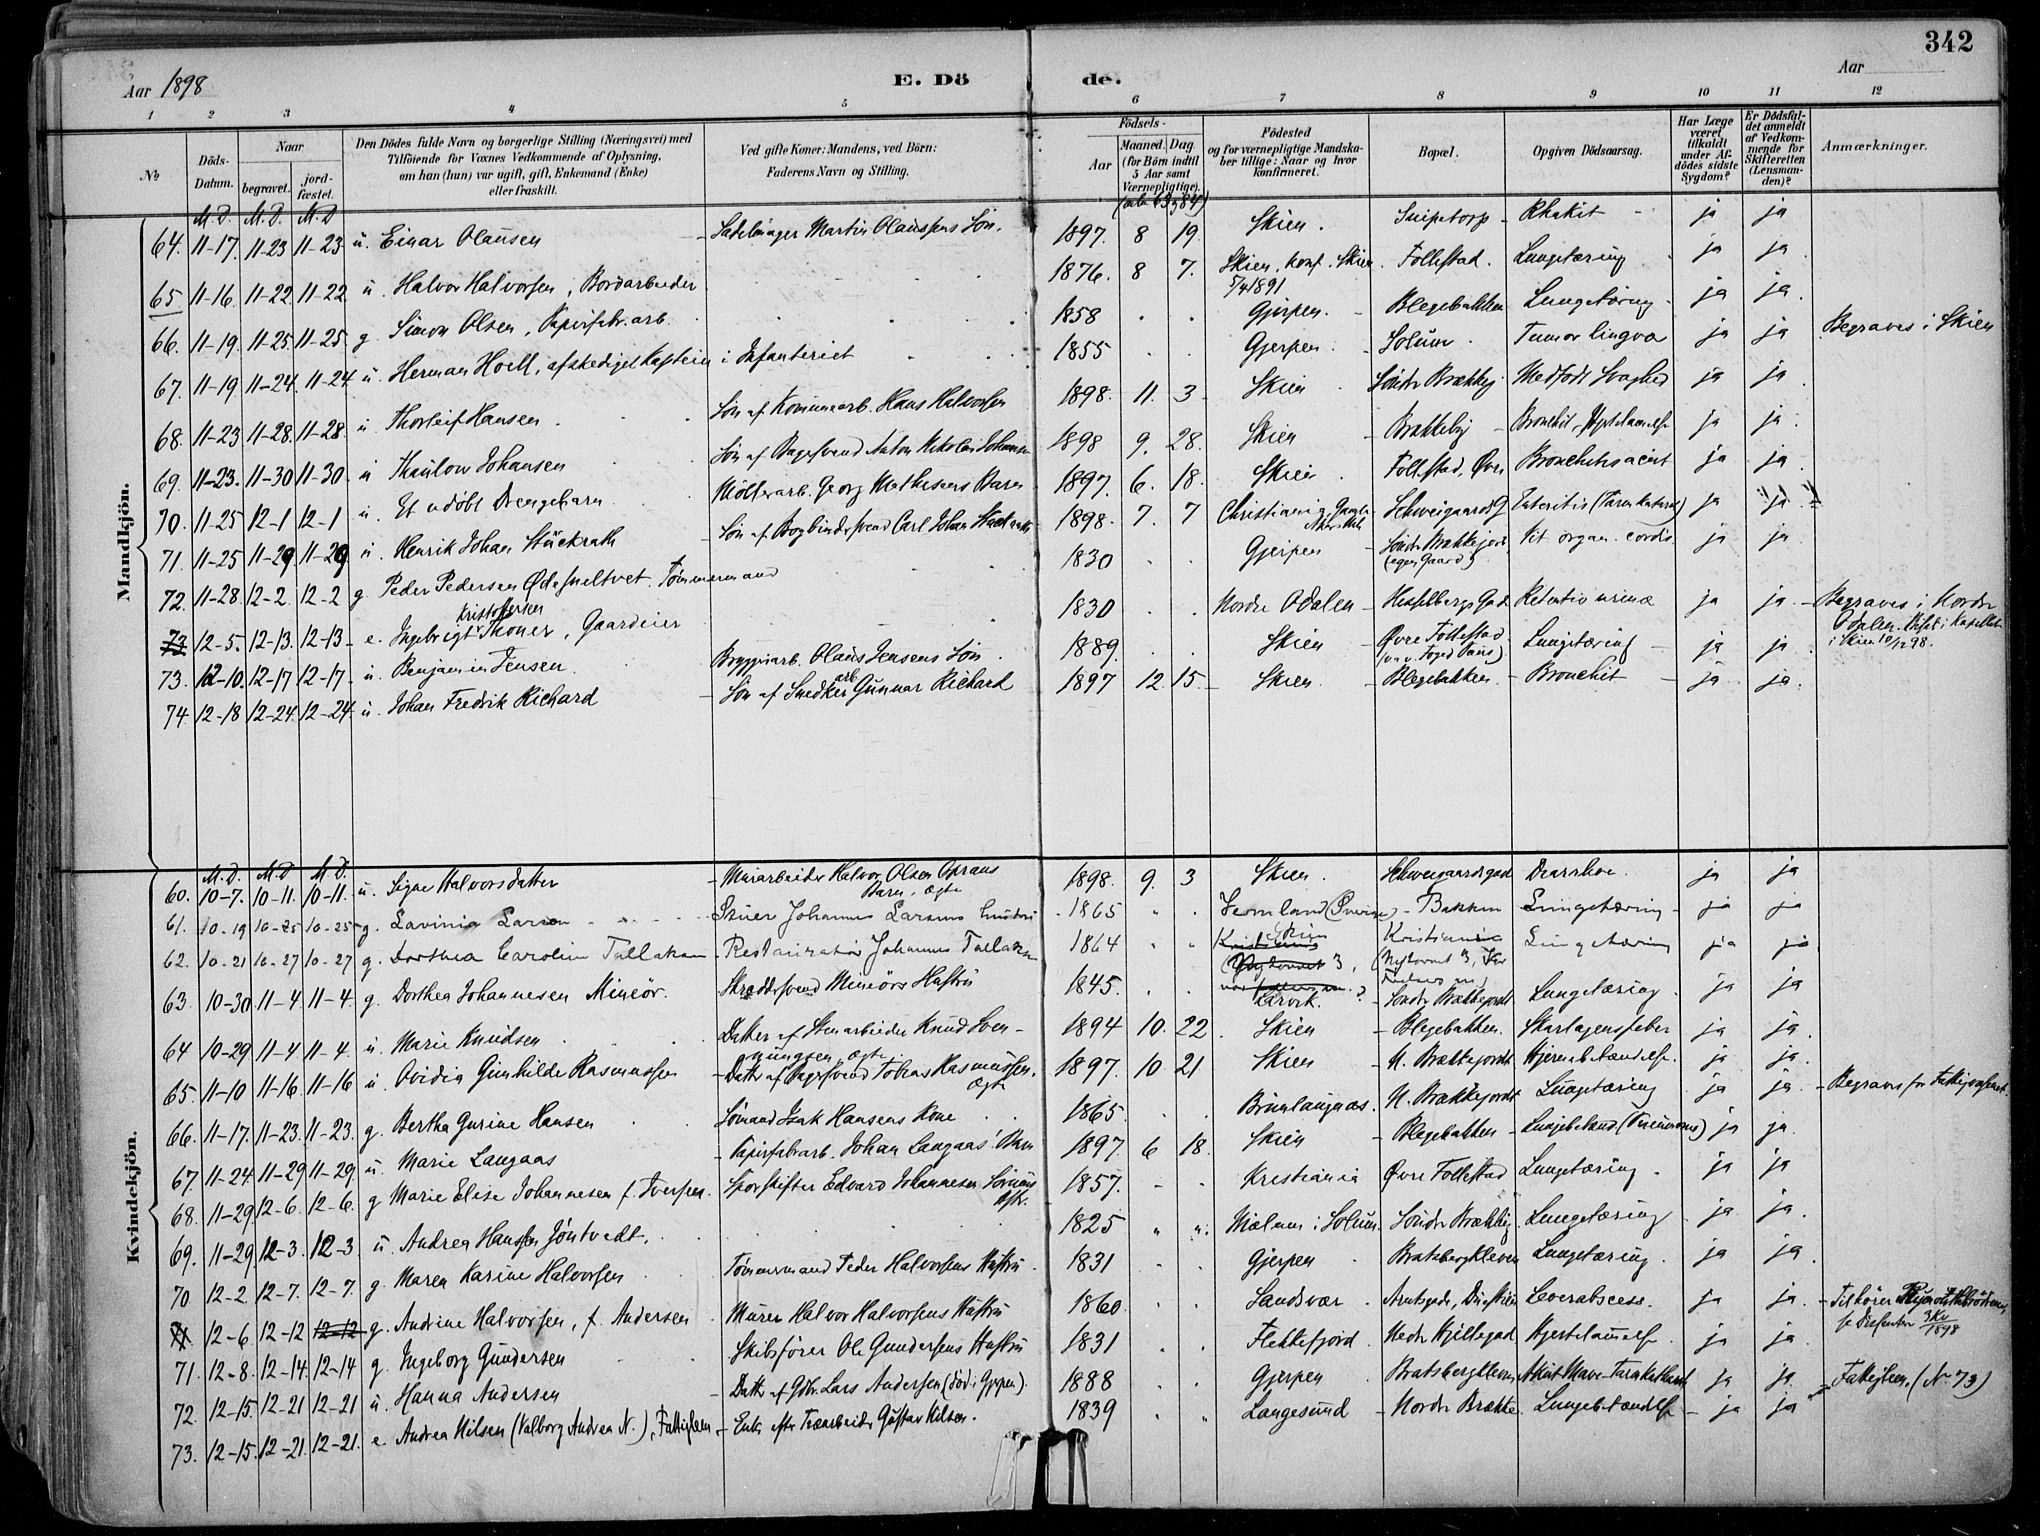 342
Aar 1898
E. Dö de.
Aar
1 2 3 4 5 6 7 8 9 10 11 12
№
Döds-Datum.
Naar begravet. jordfæstet.
Den Dödes fulde Navn og borgerlige Stilling (Næringsvei) med Tilföiende for Voxnes Vedkommende af Oplysning, om han (hun) var ugift, gift, Enkemand (Enke) eller fraskilt.
Ved gifte Koner: Mandens, ved Börn: Faderens Navn og Stilling.
Födsels-
Aar
Maaned. Dag (for Börn indtil 5 Aar samt Værnepligtige).
Födested og for værnepligtige Mandskaber tillige: Naar og hvor konfirmeret.
Bopæl.
Opgiven Dödsaarsag.
Har Læge været tilkaldt under Afdödes sidste Sygdom?
Er Dödsfaldet anmeldt af Vedkommende for Skifteretten (Lensmanden)?
Anmærkninger.
Mandkjön.
M. D. M. D. M. D
64. 11-17. 11-23 11-23 u. Einar Olausen - Sadelmager Martin Olaussens Søn. 1897. 8 19. Skien. Snipetorp - Rhakit - ja ja
65 11-16. 11-22 11-22 u. Halvor Halvorsen, Bordarbeider 1876. 8 7. Skien. konf. Skien 5/4 1891 Follestad. Lungetæring ja ja
66. 11-19. 11-25. 11-25. g. Simon Olsen, Papirfabr.arb. 1858 Gjerpen. Blegebakken Lungetæring ja ja.
67. 11-19 11-24. 11-24 u. Herman Hoell, afskediget Kaptein i Infanteriet 1855 Gjerpen. Solum. Tumor lingva ja ja Begraves i Skien
68. 11-23 11-28. 11-28. u. Thorleif Hansen Søn af Kommunearb. Hans Halvorsen 1898. 11. 3 Skien Søndr Brækkej Medfødt Svaghed ja ja
69. 11-23. 11-30 11-30 u Thaulow Johansen Søn af Bagersvend Anton Nikolai Johansen 1898 9. 28. Skien - Brækkeby - Bronchit, Hjertelamelse ja ja.
70. 11-25 12-1 12-1 u. Et udøbt Drengebarn Møllerarb. Georg Mathisens Barn 1897. 6. 18. Skien Follestad, Øvre Bronchitis acut ja ja.
71. 11-25 11-29 11-29 u. Henrik Johan Stückrath - Søn af Bogbindersvend Carl Johan Stückrath 1898. 7. 7 Christiania Schweigaards G Enteritis (Tarmkatarrh) ja ja.
72. 11-28. 12-2. 12-2 g. Peder Pedersen Ødesneltvet. Tømmermand 1830 Gjerpen Søndr Brækkejordt (egen Gaard) Vit. organ. cordis. ja ja.
73 12-5. 12-13. 12-13 - e. Ingebrigt Kristoffersen Thoner, Gaardeier 1830 Nordre Odalen - Hesselbergs Gad Retentio urinæ ja ja. - Begraves i Nordre Odalen. Bisat i Kapellet i Skien 10/12 98.
73. 12-10. 12-17 12-17 u. Benjamin Jensen Bryggearb. Olaus Jensens Søn. 1889. Skien - Øvre Follestad Lungetæring - ja ja
74 12-18 12-24. 12-24 u. Johan Fredrik Richard - Søn af Snedkerarb. Gunnar Richard 1897 12. 15. - Skien. - Blegebakken - Bronchit - ja ja.
Kvindekjön.
M. D. M. D M. D.
60. 10-7. 10-11. 10-11. u. Signe Halvorsdatter - Murarbeider Halvor Olsen Barn, ægte 1898. 9. 3 Skien. Schweigaardsgad Diarrhoe. ja ja
61. 10-19 10-25 10-25 g. Lavinia Larsen - Stuer Johannes Larsens Hustru 1865 Vermland (Sverige) - Bakken Lungetæring - ja ja
62. 10-21 10-27 10-27 g. Dorthea Caroline Tallaksen Restauratør Johannes Tallaksen 1864 Skien Kristiania (Nytorvet 3, Kristiania Lungetæring ja ja
63. 10-30 11-4. 11-4 g. Dorthea Johannesen Mineör. Skræddersvend Mineörs Hustru 1845. Larvik. - Søndr Brækkejordt Lungetæring. ja ja
64 10-29 11-4 11-4. u. Marie Knudsen Datter af Stenarbeider Knud Svennungsen, ægte 1894 10. 22. Skien - Blegebakken. Skarlagensfeber ja ja.
65. 11-10 11-16. 11-16 u. Ovidia Gunhilde Rasmussen - Datter af Bagersvend Tobias Rasmussen, ægte 1897. 10 21 Skien - N. Brækkejordt Hjernebetændelse. ja ja.
66. 11-17. 11-23. 11-23. g. Bertha Gurine Hansen Sømand Isak Hansens Kone 1865. Brunlangnæs. N. Brækkejordt Lungetæring ja ja. - Begraves for Fattigvæsenet.
67. 11-24. 11-29 11-29. u. Marie Langaas - Papirfabrarb. Johan Langaas' Barn 1897. 6 18. Skien - Blegebakken - Lungebetænd (Pneumoni) ja ja.
68. 11-29 12-6. 12-6. g Marie Elise Johannesen f. Iversen. Sporskifter Edvard Johannesen 1857. Kristiania Øvre Follestad Lungetæring. ja ja
69. 11-29 12-3. 12-3 u. Andrea Hanssen Jøntvedt. 1825 Mælum i Solum. Søndr Brækkej Lungetæring ja ja.
70. 12-2. 12-7. 12-7. g. Maren Karine Halvorsen Tømmermand Peder Halvorsens Hustru 1831 Gjerpen Bratsbergkleven Lungetæring. ja ja
71 12-6. 12-12 12-12 g. Andrine Halvorsen, f. Andersen Murer Halvor Halvorsens Hustru 1860. Sandsvær Leverabscess. ja ja.
71. 12-8. 12-14. 12-14 g. Ingeborg Gundersen Skibsfører Ole Gundersens Hustru 1831 Flekkefjord. Nedre Hjellegad Hjertelamelse ja ja.
72. 12-15. 12-21 12-21 u. Hanna Andersen - Datter af Gdbr. Lars Andersen (død i Gjerpen). 1888 Gjerpen Bratsbergkleven Akut Mave-Tarmkatharrh ja ja. Fattiglem. (No 73)
73. 12-15. 12-21. 12-21. e. Andrea Nilsen (Valborg Andrea N.), Fattiglem - Enke efter Træarbeider Gustav Nilsen. 1839 Langesund - Nordre Brække. Lungebetændelse - ja ja